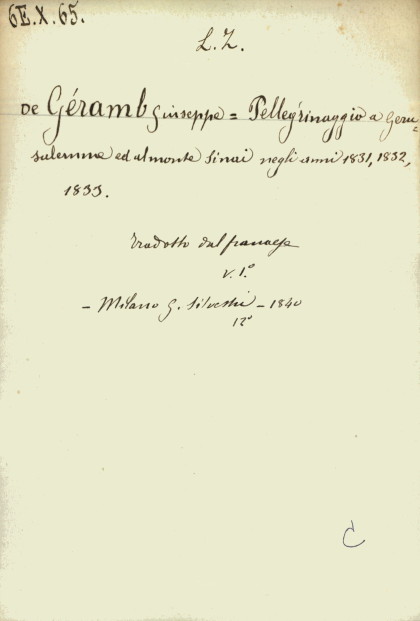 6E.X.65.
L.Z.
De Géramb Giuseppe = Pellegrinaggio a Geru-
salemme ed al monte Sinai negli anni 1831, 1832,
1833.
Tradotto dal francese
v. 1.°
- Milano G. Silvestri - 1840
12°
C